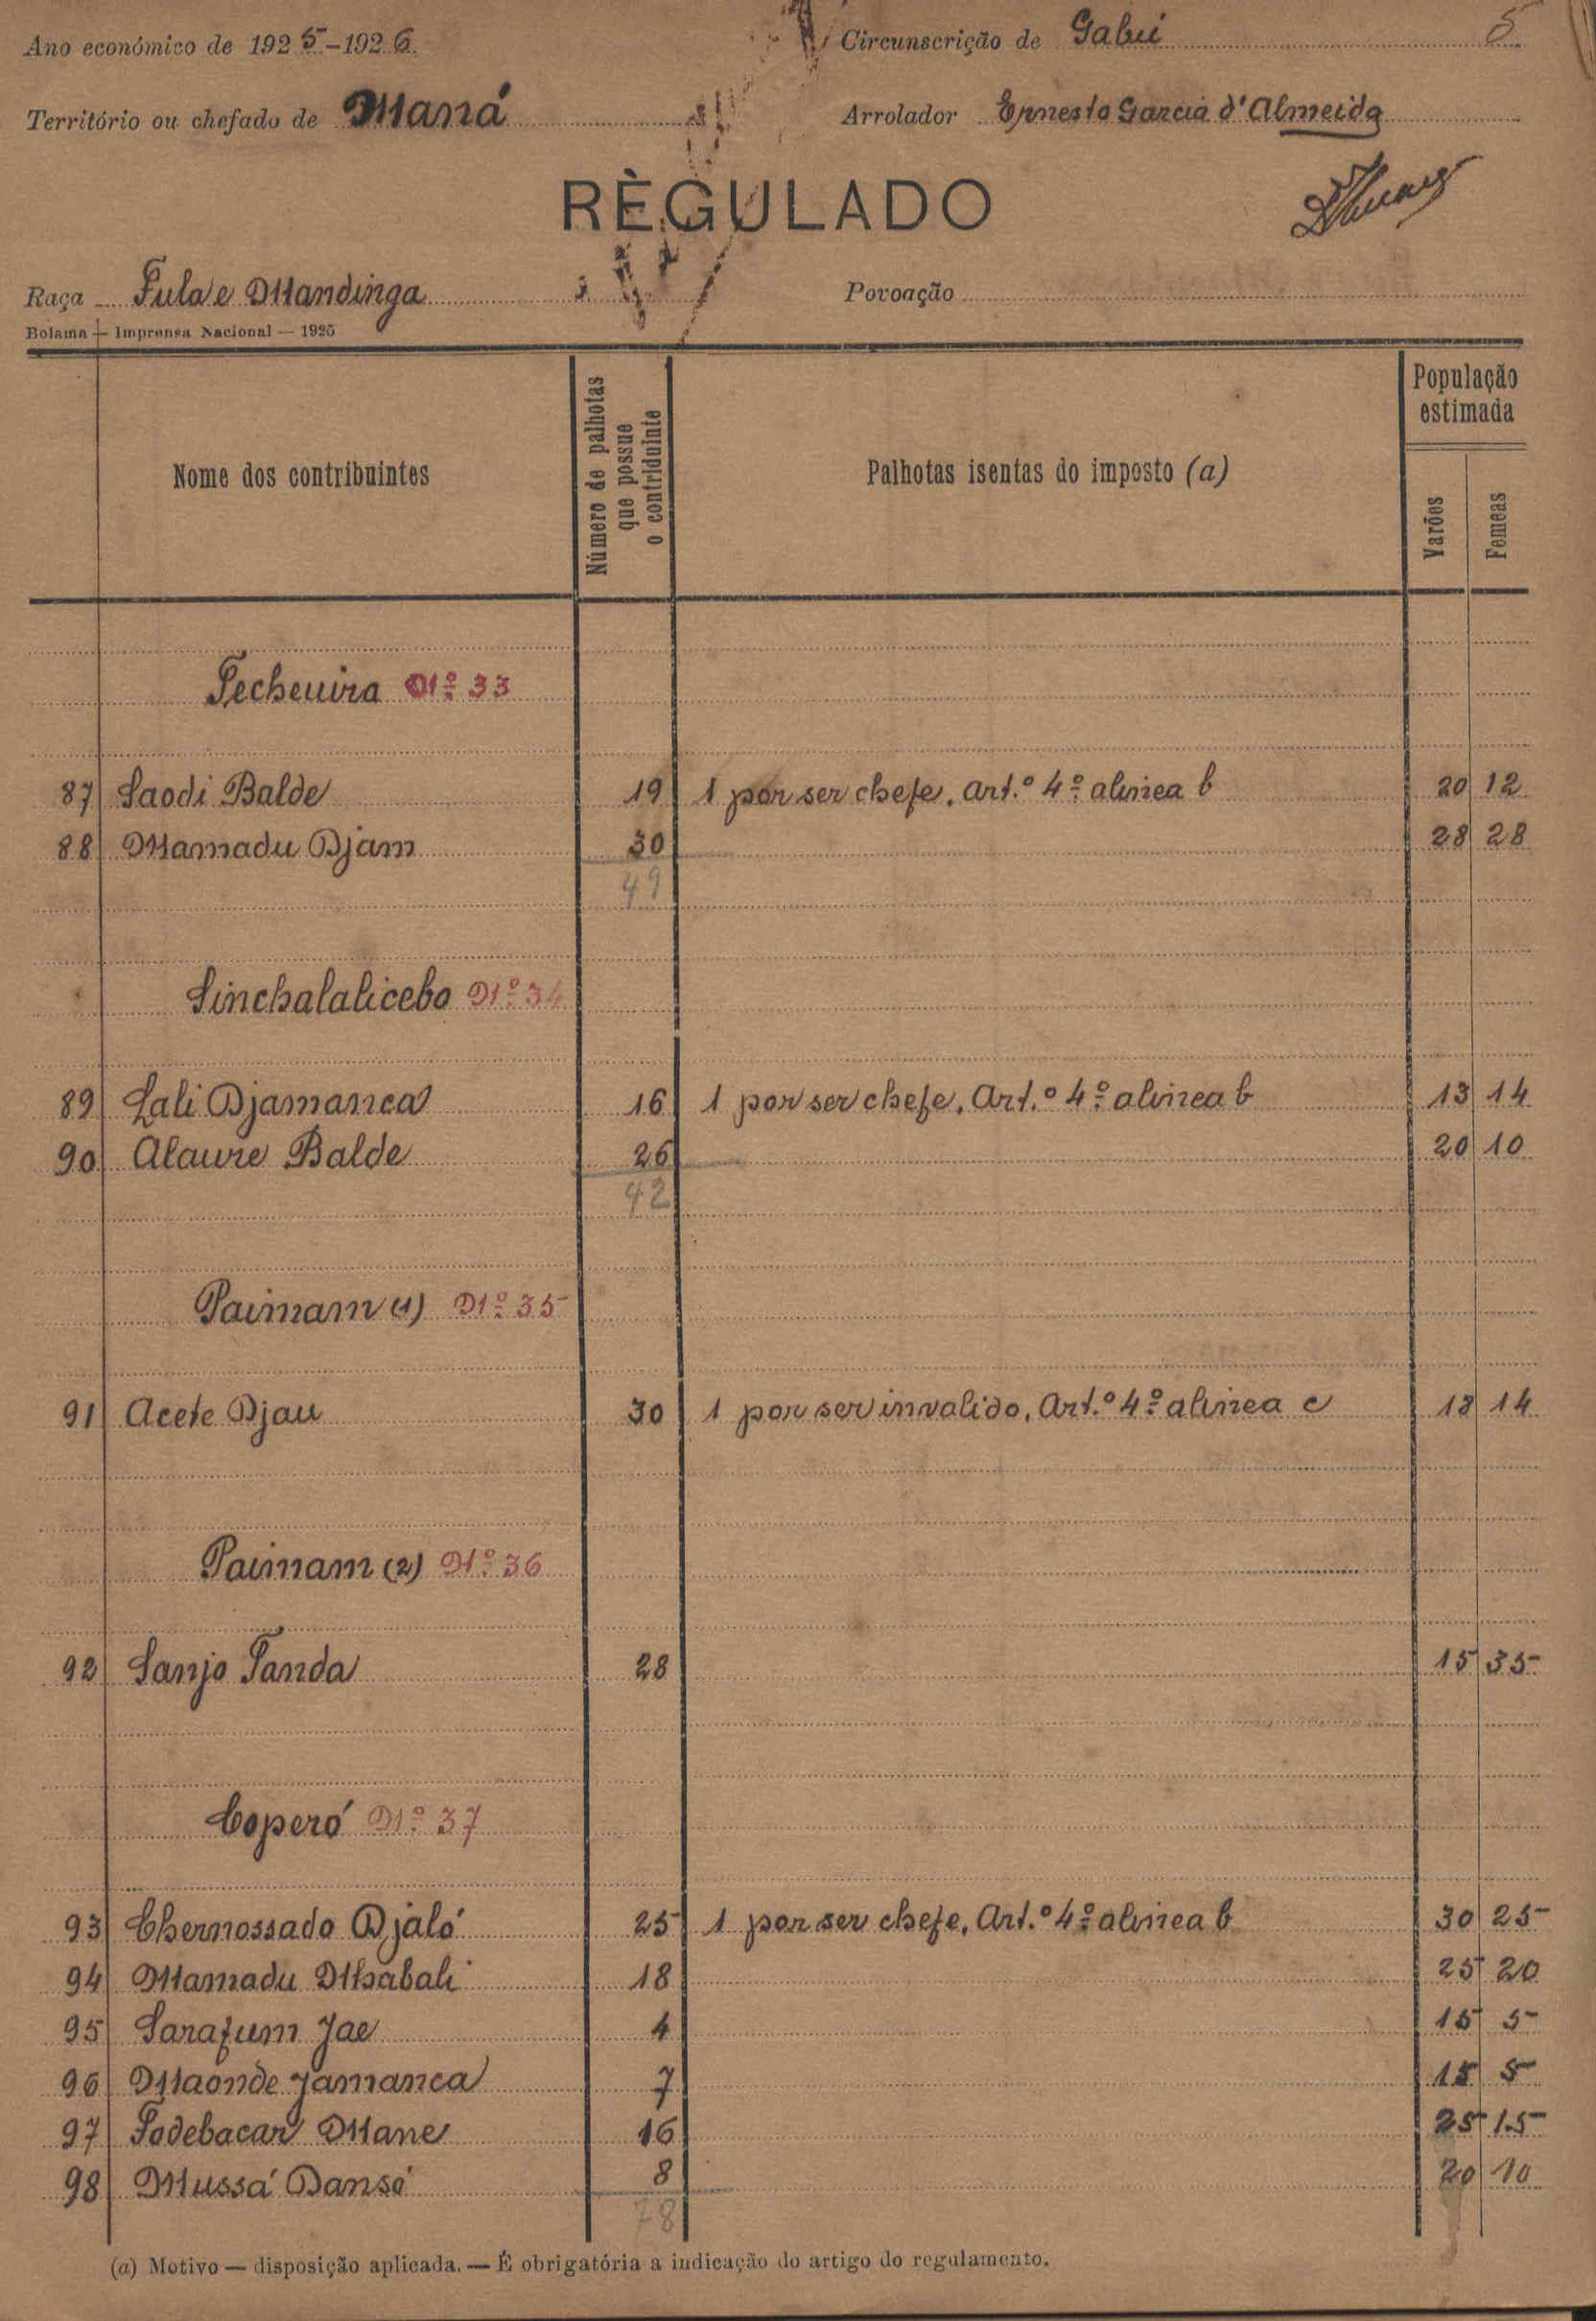 Ano económico de 1925-1926
Circunscrição de Gabú 5
Território ou chefado de Maná
Arrolador Ernesto Garcia d'Almeida
RÈGULADO
Raça Fula e Mandinga
Povoação
Bolama — Imprensa Nacional — 1925
Nome dos contribuintes
Número de palhotas que possue o contriduinte
Palhotas isentas do imposto (a)
População estimada
Varões
Femeas
Techeuira Nº 33
87 Saodi Balde 19 1 por ser chefe, art.º 4º alinea b 20 12
88 Mamadu Djam 30 28 28
49
Sinchalalicebo Nº 34
89 Lali Djamanca 16 1 por ser chefe, Art.º 4º alinea b 13 14
90 Alaure Balde 26 20 10
42
Painam (1) Nº 35
91 Acete Djau 30 1 por ser invalido, Art.º 4º alinea c 18 14
Painam (2) Nº 36
92 Sanjo Tanda 28 15 35
Coperó Nº 37
93 Chernossado Djaló 25 1 por ser chefe, Art.º 4º alinea b 30 25
94 Mamadu Mhabali 18 25 20
95 Sarafum Jae 4 15 5
96 Maonde Jamanca 7 15 5
97 Fodebacar Mane 16 25 15
98 Mussá Dansó 8 20 10
78
(a) Motivo — disposição aplicada. — É obrigatória a indicação do artigo do regulamento.